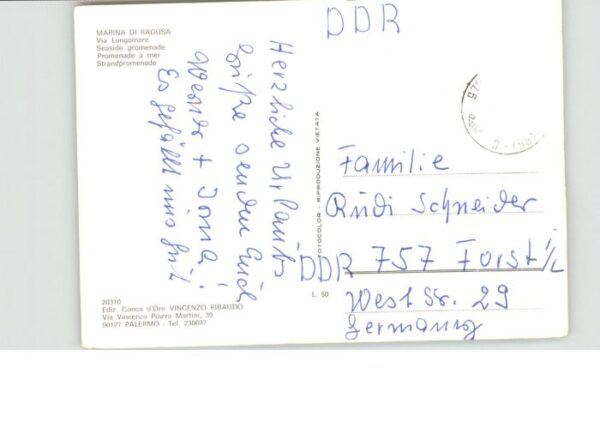 MARINA DI RAGUSA
Via Lungomare
Seaside promenade
Promenade à mer
Strandpromenade
DDR
Herzliche Urlaubs
Grüße senden Euch
Werner + Irina
Es gefällt uns gut
FOTOCOLOR - RIPRODUZIONE VIETATA
Familie
Rudi Schneider
DDR 757 Forst/L
West Str. 29
Germany
20310
Ediz. Conca d'Oro VINCENZO RIBAUDO
Via Vincenzo Piazza Martini, 39
90127 PALERMO - Tel. 230697
L. 50